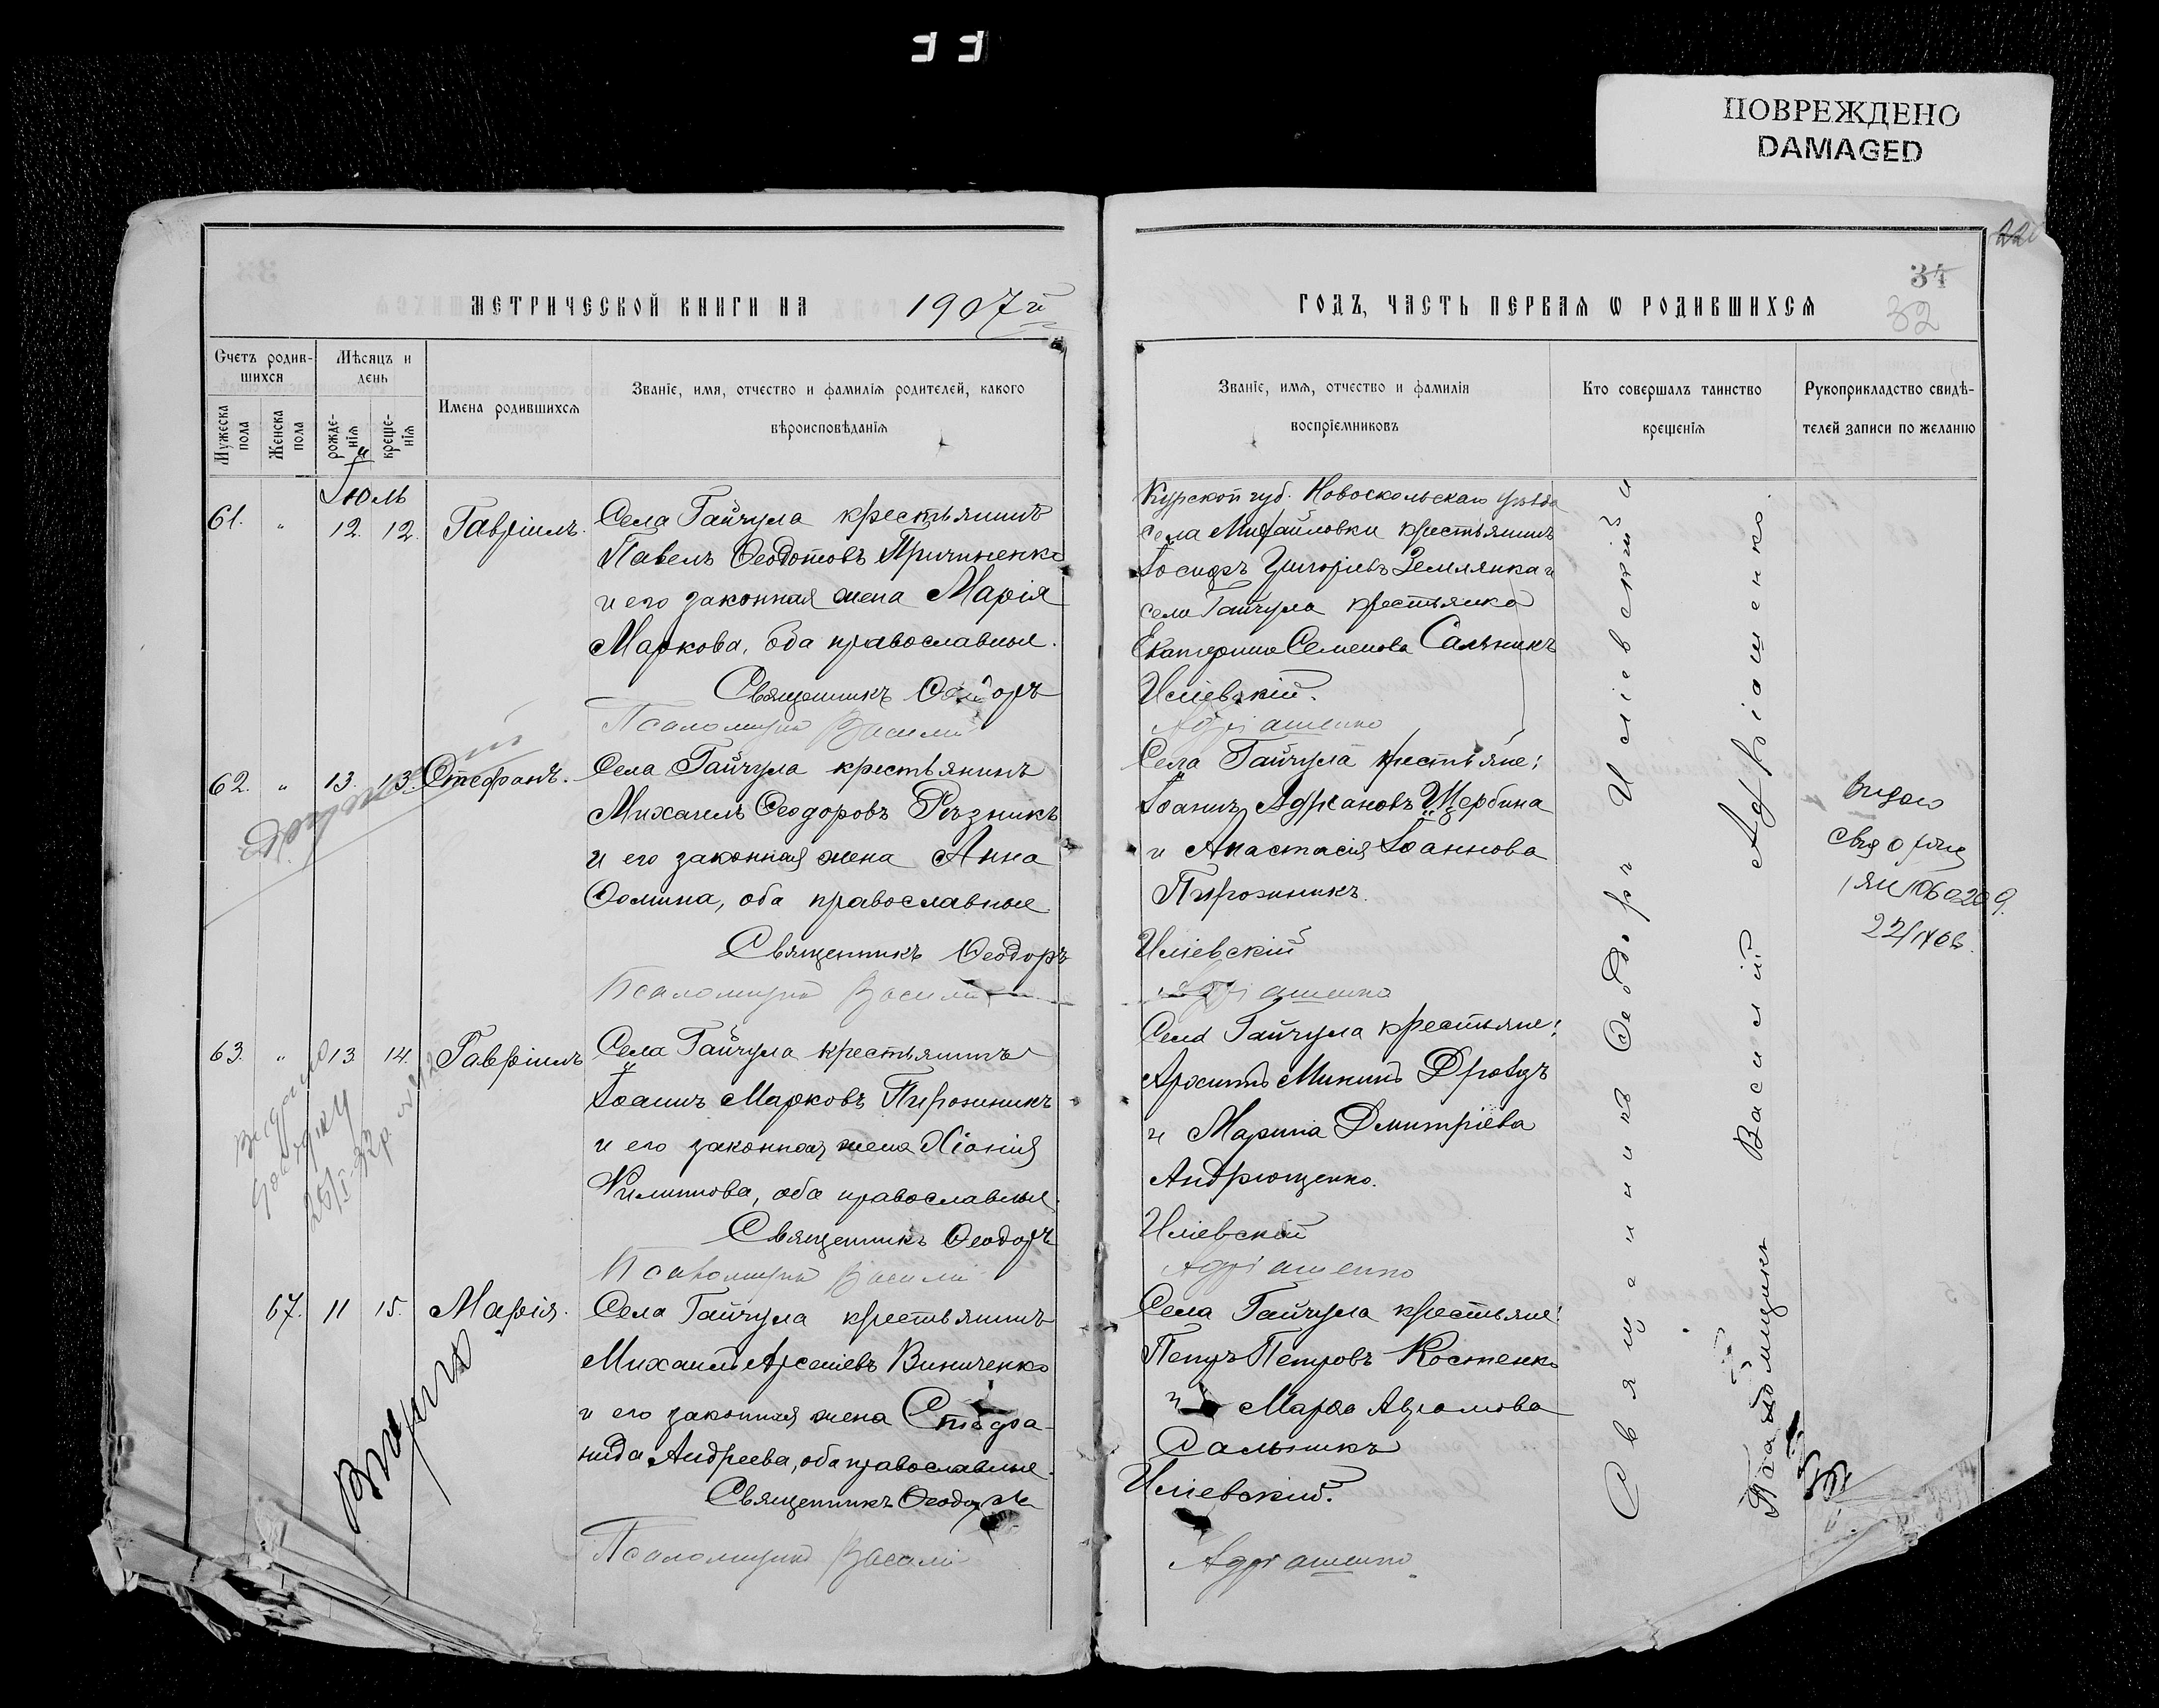 ПОВРЕЖДЕНО
DAMAGED
МЕТРИЧЕСКОЙ КНИГИ НА 1907 й
Счетъ родившихся
Мужеска пола
Женска пола
Мѣсяцъ и день
рожденія
крещенія
Имена родившихся
Званіе, имя, отчество и фамилія родителей, какого
вѣроисповѣданія
Іюль
61. " 12. 12. Гавріилъ.
Села Гайчула крестьянинъ
Павелъ Ѳеодотовъ Причиненко
и его законная жена Марія
Маркова, оба православные.
Священникъ Ѳеодоръ
Псаломщикъ Василій
62. " 13. 13. Стефанъ.
Села Гайчула крестьянинъ
Михаилъ Ѳеодоровъ Рѣзникъ
и его законная жена Анна
Ѳомина, оба православные
Священникъ Ѳеодоръ
Псаломщикъ Василій
63. " 13 14. Гавріилъ
Села Гайчула крестьянинъ
Іоаннъ Марковъ Пирожникъ
и его законная жена Хіонія
Филиппова, оба православные.
Священникъ Ѳеодоръ
Псаломщикъ Василій
67. 11 15. Марія.
Села Гайчула крестьянинъ
Михаилъ Арсеніевъ Виниченко
и его законная жена Стефа-
нида Андреева, оба православные.
Священникъ Ѳеодоръ
Псаломщикъ Василій
34
32
ГОДЪ, ЧАСТЬ ПЕРВАЯ Ѡ РОДИВШИХСЯ
Званіе, имя, отчество и фамилія
воспріемниковъ
Кто совершалъ таинство
крещенія
Рукоприкладство свидѣ-
телей записи по желанію
Курской губ. Новоскольскаго уѣзда
села Михайловки крестьянинъ
Іосифъ Григорьевъ Землянка и
села Гайчула крестьянка
Екатерина Семенова Сальникъ
Иліевскій.
Адріашенко
Села Гайчула крестьяне:
Іоаннъ Адріановъ Щербина
и Анастасія Іоаннова
Пирожникъ.
Иліевскій
Адріашенко
Села Гайчула крестьяне:
Дроздъ
и Марина Димитріева
Андрющенко.
Иліевскій
Адріашенко
Села Гайчула крестьяне:
Петръ Петровъ Костенко
и Марѳа
Сальникъ
Иліевскій.
Адріашенко
Священникъ Ѳеодоръ Иліевскій и
Псаломщикъ Василій Адріашенко.